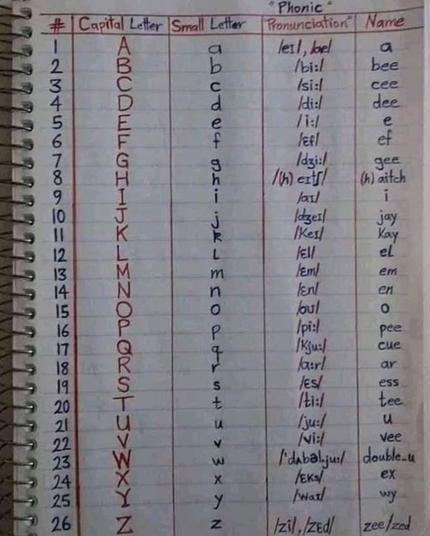 "Phonic"
# Capital Letter Small Letter Pronunciation" Name
1 A a /eɪ/, /æ/ a
2 B b /bi:/ bee
3 C c /si:/ cee
4 D d /di:/ dee
5 E e /i:/ e
6 F f /ɛf/ ef
7 G g /dʒi:/ gee
8 H h /(h) eɪtʃ/ (h) aitch
9 I i /aɪ/ i
10 J j /dʒeɪ/ jay
11 K k /keɪ/ kay
12 L L /ɛl/ eL
13 M m /ɛm/ em
14 N n /ɛn/ en
15 O o /oʊ/ o
16 P p /pi:/ pee
17 Q q /kju:/ cue
18 R r /a:r/ ar
19 S s /ɛs/ ess
20 T t /ti:/ tee
21 U u /ju:/ u
22 V v /vi:/ vee
23 W w /'dʌbəl.ju:/ double_u
24 X x /ɛks/ ex
25 Y y /waɪ/ wy
26 Z z /zi/, /zɛd/ zee/zed